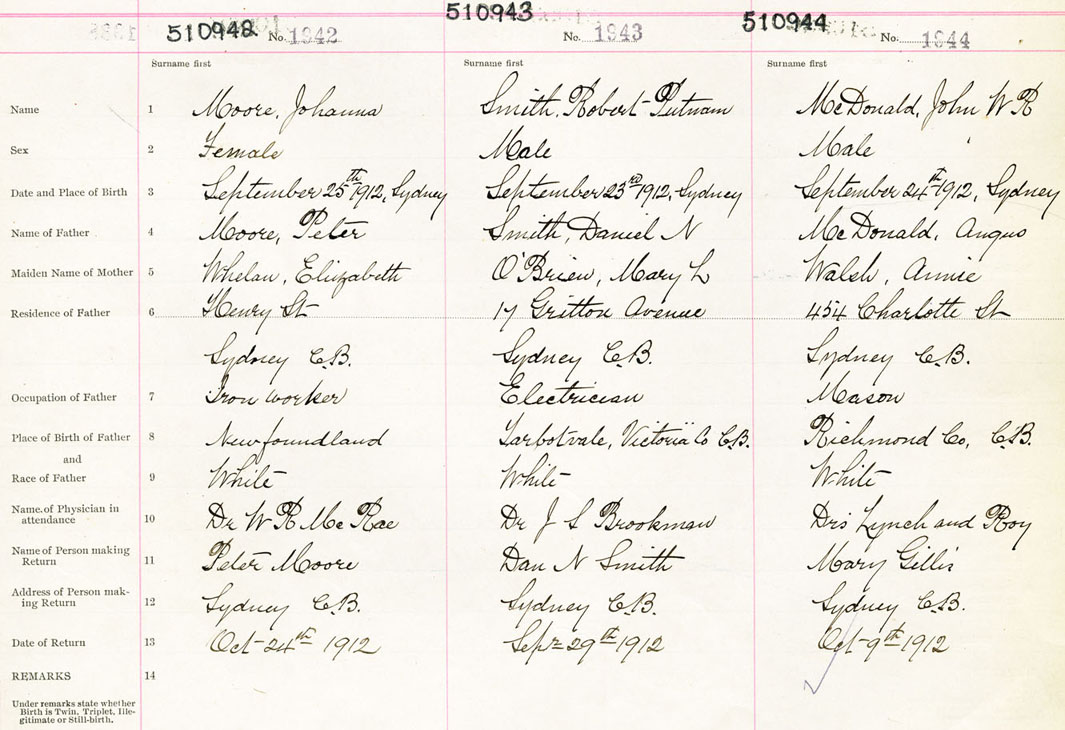 510942 No. 1942 510943 No. 1943 510944 No. 1944
Surname first Surname first Surname first
Name 1 Moore, Johanna Smith, Robert Putnam McDonald, John W R
Sex 2 Female Male Male
Date and Place of Birth 3 September 25th 1912, Sydney September 23rd 1912, Sydney September 24th 1912, Sydney
Name of Father 4 Moore, Peter Smith, Daniel N McDonald, Angus
Maiden Name of Mother 5 Whelan, Elizabeth O'Brien, Mary L Walsh, Annie
Residence of Father 6 Henry St 17 Gritton Avenue 454 Charlotte St
Sydney C.B. Sydney C.B. Sydney C.B.
Occupation of Father 7 Iron worker Electrician Mason
Place of Birth of Father 8 Newfoundland Tarbotvale, Victoria Co C.B. Richmond Co, C.B.
and
Race of Father 9 White White White
Name of Physician in
attendance 10 Dr W R McRae Dr J S Brookman Drs Lynch and Roy
Name of Person making
Return 11 Peter Moore Dan N Smith Mary Gillis
Address of Person mak-
ing Return 12 Sydney C.B. Sydney C.B. Sydney C.B.
Date of Return 13 Oct 24th 1912 Sept 29th 1912 Oct 9th 1912
REMARKS 14
Under remarks state whether
Birth is Twin, Triplet, Ille-
gitimate or Still-birth.